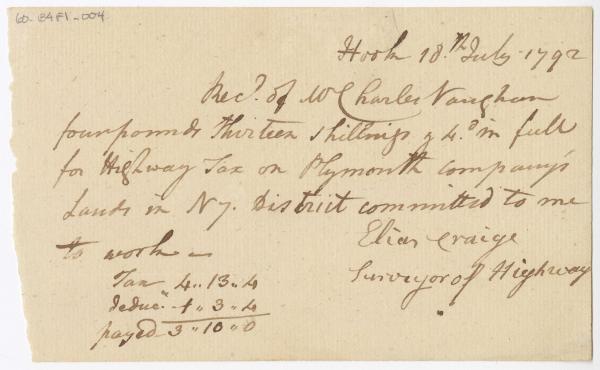 60-B4F1-004
Hook 18.th July 1792
Rec.d of Mr Charles Vaughan
four pounds Thirteen shillings & 4.d in full
for Highway Tax on Plymouth company's
Lands in N 7. District committed to me
to work
Elias Craige
Surveyor of Highway
Tax 4 ,, 13 ,, 4
deduc.n 1 ,, 3 ,, 4
payed 3 ,, 10 ,, 0